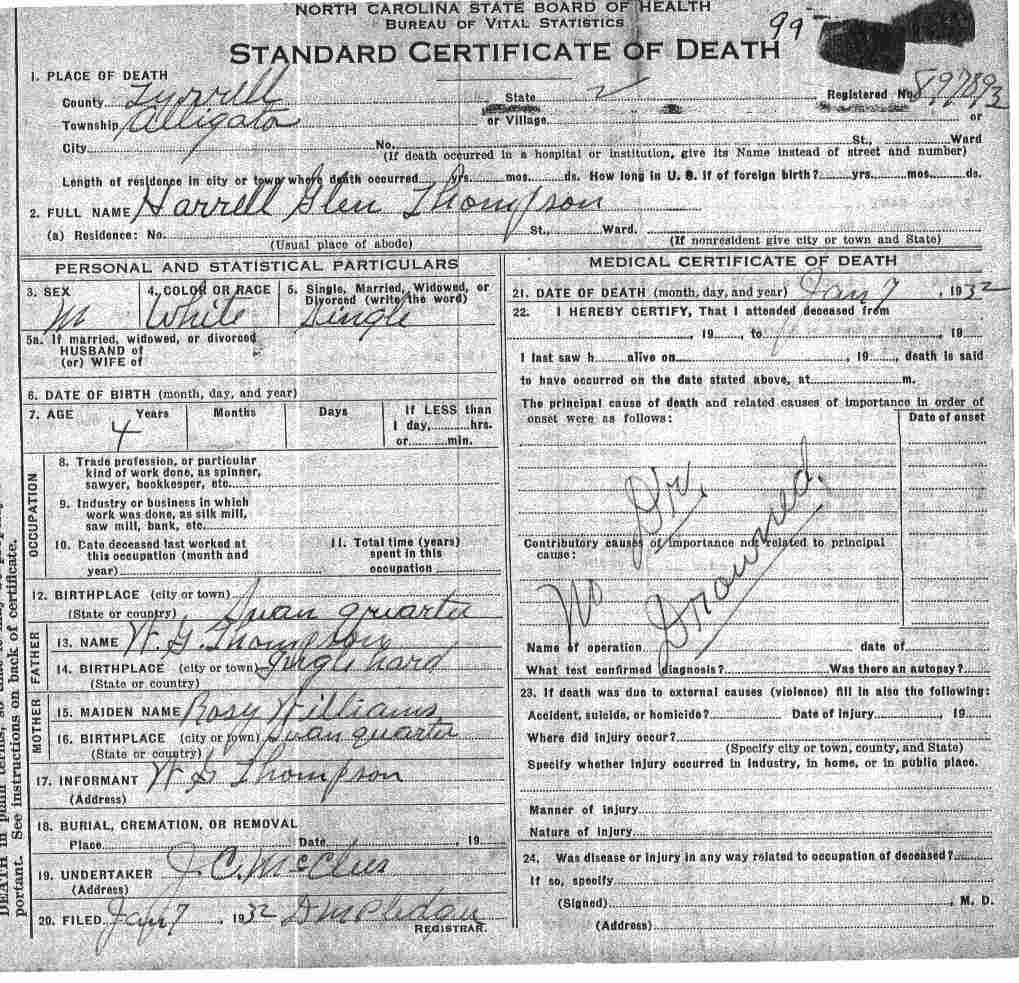 NORTH CAROLINA STATE BOARD OF HEALTH
BUREAU OF VITAL STATISTICS
STANDARD CERTIFICATE OF DEATH
99
1. PLACE OF DEATH
County Tyrrell State Registered No.
Township Alligator or Village or
City No. St., Ward
(If death occurred in a hospital or institution, give its Name instead of street and number)
Length of residence in city or town where death occurred yrs. mos. ds. How long in U. S. if of foreign birth? yrs. mos. ds.
2. FULL NAME Harrell Glen Thompson
(a) Residence: No. St., Ward.
(Usual place of abode) (If nonresident give city or town and State)
PERSONAL AND STATISTICAL PARTICULARS
3. SEX 4. COLOR OR RACE 5. Single, Married, Widowed, or Divorced (write the word)
M White Single
5a. If married, widowed, or divorced
HUSBAND of
(or) WIFE of
6. DATE OF BIRTH (month, day, and year)
7. AGE Years Months Days If LESS than
1 day, hrs.
4 or min.
OCCUPATION
8. Trade profession, or particular
kind of work done, as spinner,
sawyer, bookkeeper, etc.
9. Industry or business in which
work was done, as silk mill,
saw mill, bank, etc.
10. Date deceased last worked at
this occupation (month and
year)
11. Total time (years)
spent in this
occupation
12. BIRTHPLACE (city or town)
(State or country) Swan quarter
FATHER
13. NAME W. G. Thompson
14. BIRTHPLACE (city or town)
(State or country)
MOTHER
15. MAIDEN NAME Rosy Williams
16. BIRTHPLACE (city or town) Swan quarter
(State or country)
17. INFORMANT W G Thompson
(Address)
18. BURIAL, CREMATION, OR REMOVAL
Place Date 19
19. UNDERTAKER J. C.
(Address)
20. FILED Jan 7, 1932
REGISTRAR.
MEDICAL CERTIFICATE OF DEATH
21. DATE OF DEATH (month, day, and year) Jan 7, 1932
22. I HEREBY CERTIFY, That I attended deceased from
, 19 , to , 19
I last saw h alive on , 19 , death is said
to have occurred on the date stated above, at m.
The principal cause of death and related causes of importance in order of
onset were as follows:
Date of onset
No Dr.
Drowned.
Contributory causes of importance not related to principal
cause:
Name of operation date of
What test confirmed diagnosis? Was there an autopsy?
23. If death was due to external causes (violence) fill in also the following:
Accident, suicide, or homicide? Date of injury , 19
Where did injury occur?
(Specify city or town, county, and State)
Specify whether injury occurred in industry, in home, or in public place.
Manner of injury
Nature of injury
24. Was disease or injury in any way related to occupation of deceased?
If so, specify
(Signed) , M. D.
(Address)
portant. See instructions on back of certificate.